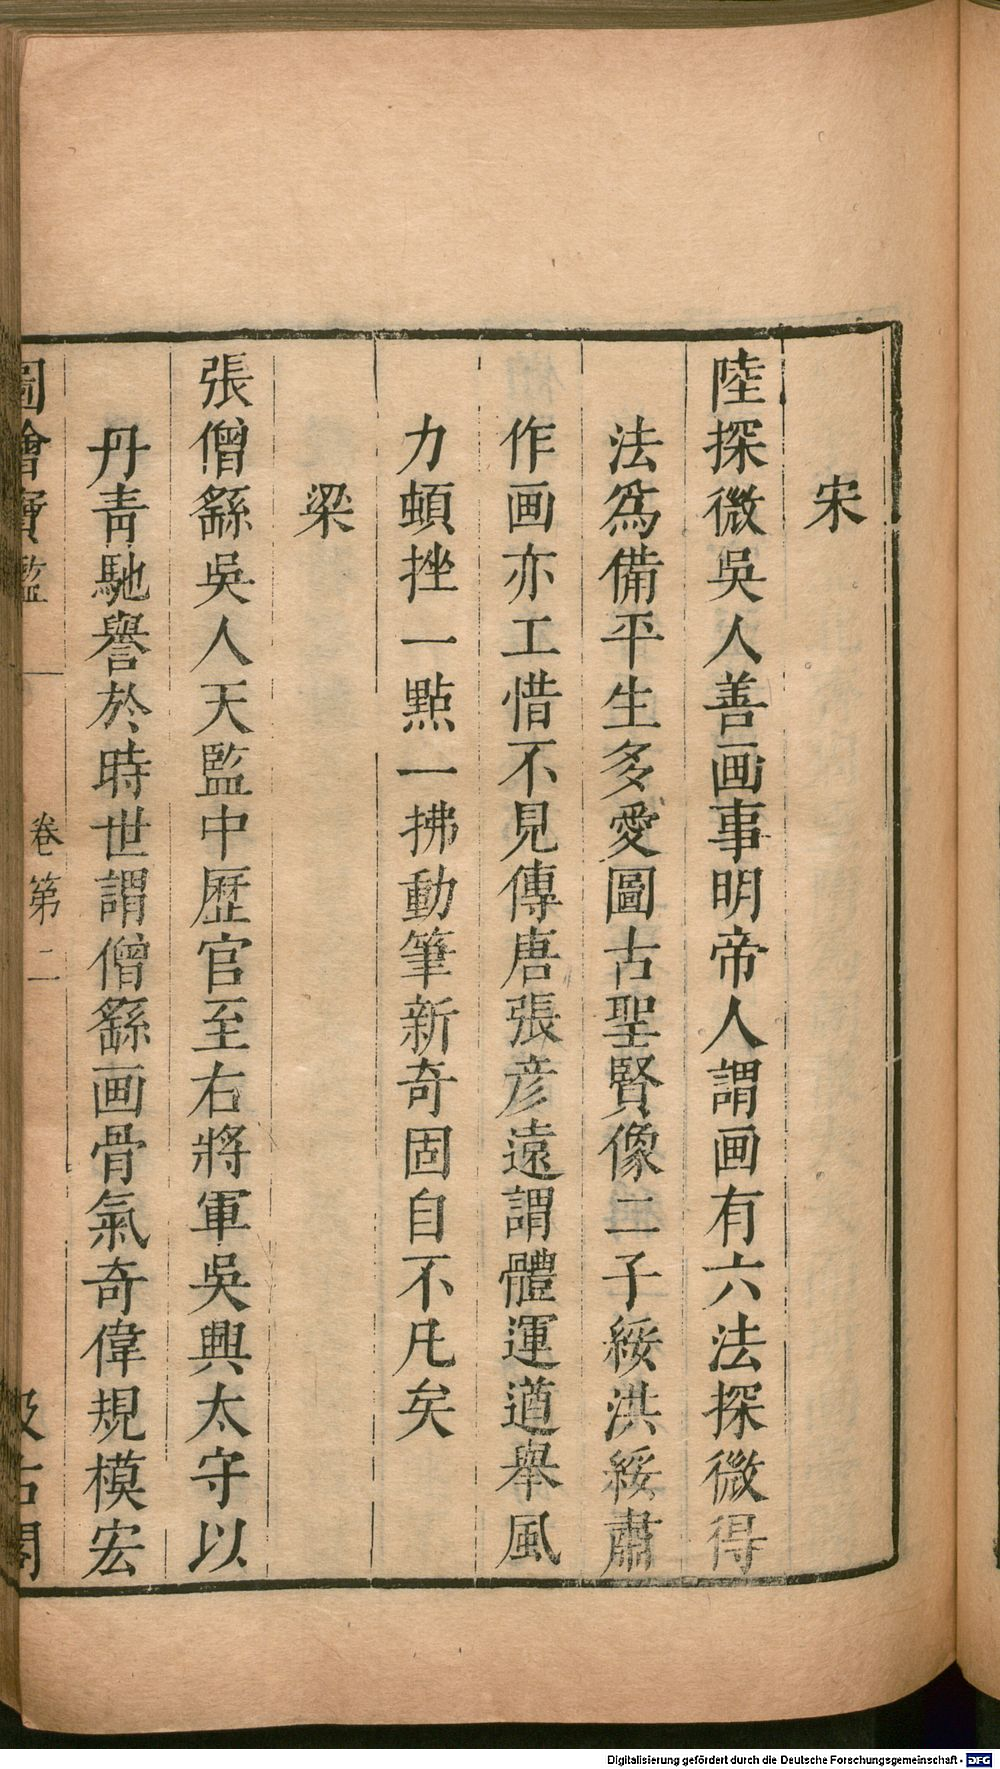 宋
陸探微吳人善画事明帝人謂画有六法探微得
法爲備平生多愛圖古聖賢像二子綏洪綏肅
作画亦工惜不見傳唐張彦遠謂體運遒舉風
力頓挫一點一拂動筆新奇固自不凡矣
梁
張僧繇吳人天監中歷官至右將軍吳興太守以
丹青馳譽於時世謂僧繇画骨氣奇偉規模宏
圖繪寶鑑 卷第二 汲古閣
Digitalisierung gefördert durch die Deutsche Forschungsgemeinschaft - DFG